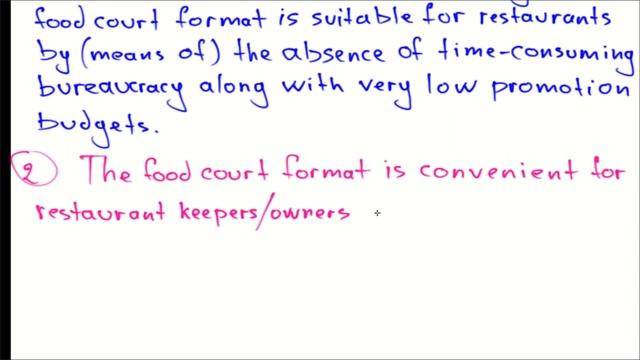 food court format is suitable for restaurants
by (means of) the absence of time-consuming
bureaucracy along with very low promotion
budgets.
2 The food court format is convenient for
restaurant keepers/owners